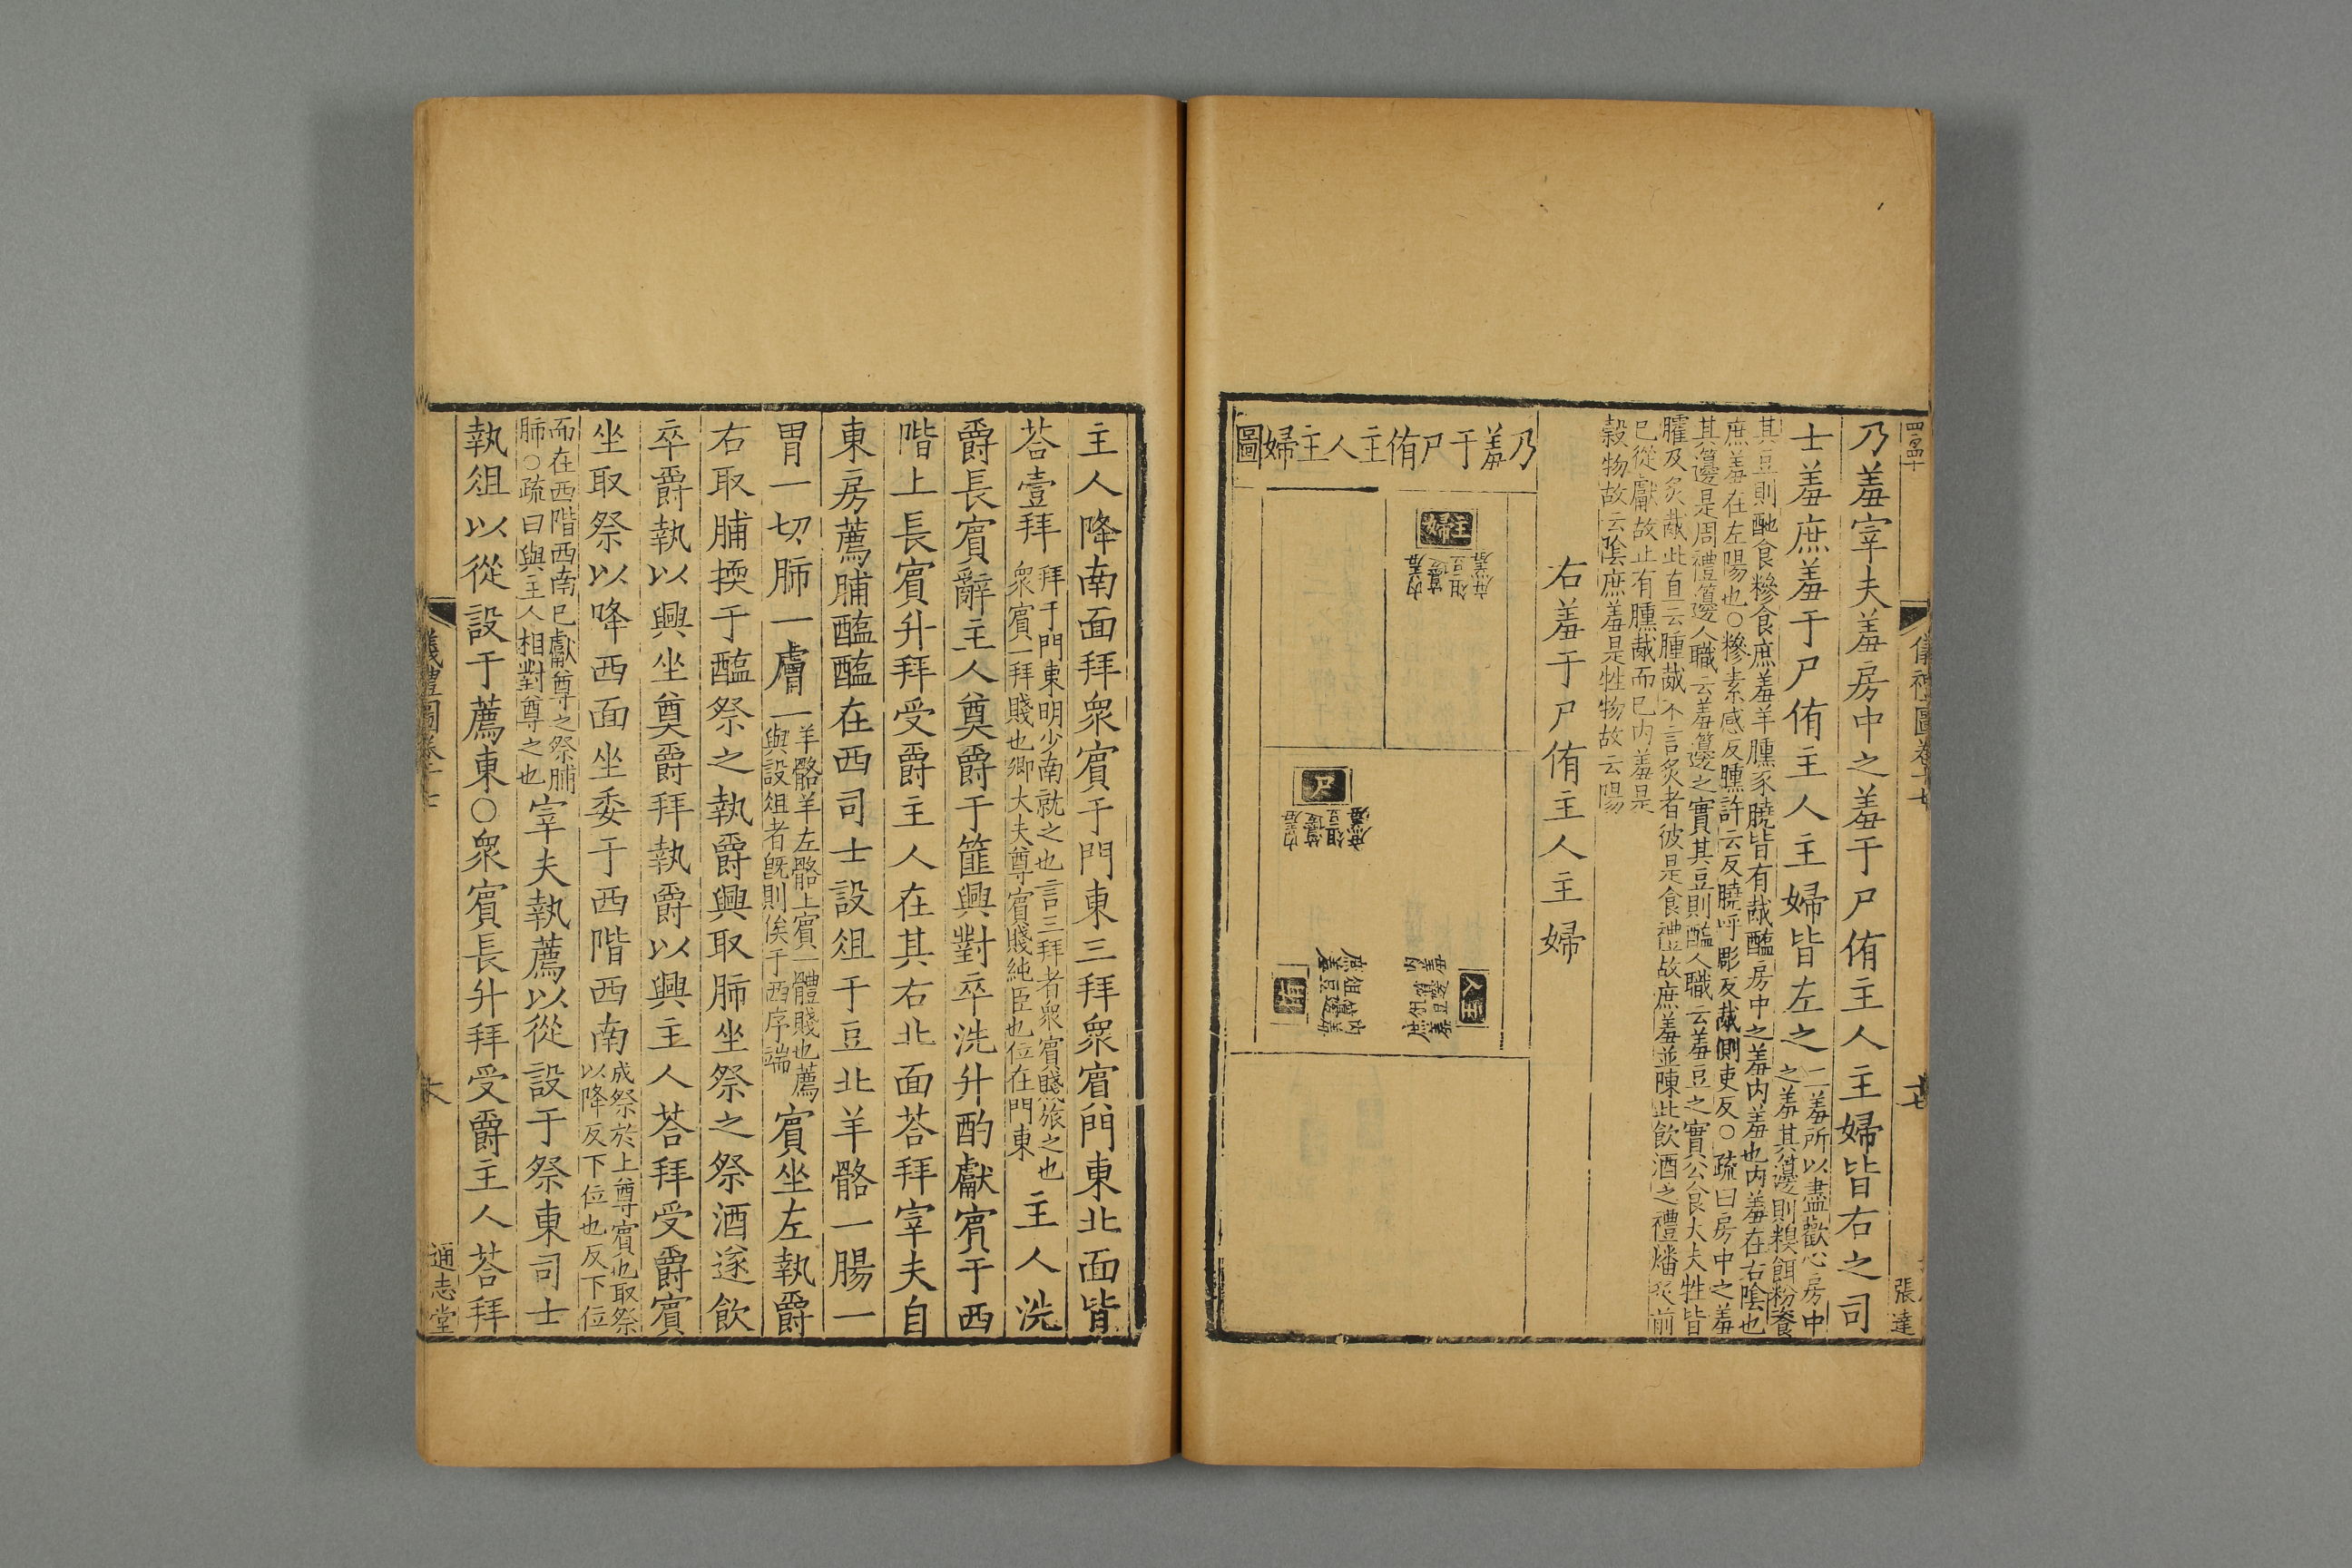 儀禮圖卷十七
張達
乃羞宰夫羞房中之羞于尸侑主人主婦皆右之司
士羞庶羞于尸侑主人主婦皆左之
二羞所以盡歡心房中
之羞其籩則糗餌粉餈
其豆則酏食糝食庶羞羊臐豕膮皆有胾醢房中之羞内羞也内羞在右陰也
庶羞在左陽也○糝素感反臐許云反膮呼彫反胾側吏反○疏曰房中之羞
其籩是周禮籩人職云羞籩之實其豆則醢人職云羞豆之實公食大夫牲皆
臛及炙胾此直云臐胾不言炙者彼是食禮故庶羞並陳此飲酒之禮燔炙前
已從獻故止有臐胾而已内羞是
穀物故云陰庶羞是牲物故云陽
右羞于尸侑主人主婦
乃羞于尸侑主人主婦圖
主婦
庶羞
俎豆籩
内羞
尸
庶羞
俎豆籩
内羞
主人
内羞
籩豆俎
庶羞
侑
庶羞
俎豆籩
内羞
主人降南面拜衆賓于門東三拜衆賓門東北面皆
荅壹拜
拜于門東明少南就之也言三拜者衆賓賤旅之也
衆賓一拜賤也卿大夫尊賓賤純臣也位在門東
主人洗
爵長賓辭主人奠爵于篚興對卒洗升酌獻賓于西
階上長賓升拜受爵主人在其右北面荅拜宰夫自
東房薦脯醢醢在西司士設俎于豆北羊骼一腸一
胃一切肺一膚一
羊骼羊左骼上賓一體賤也薦
與設俎者旣則俟于西序端
賓坐左執爵
右取脯擩于醢祭之執爵興取肺坐祭之祭酒遂飮
卒爵執以興坐奠爵拜執爵以興主人荅拜受爵賓
坐取祭以降西面坐委于西階西南
成祭於上尊賓也取祭
以降反下位也反下位
而在西階西南已獻尊之祭脯
肺○疏曰與主人相對尊之也
宰夫執薦以從設于祭東司士
執俎以從設于薦東○衆賓長升拜受爵主人荅拜
儀禮圖卷十七
通志堂